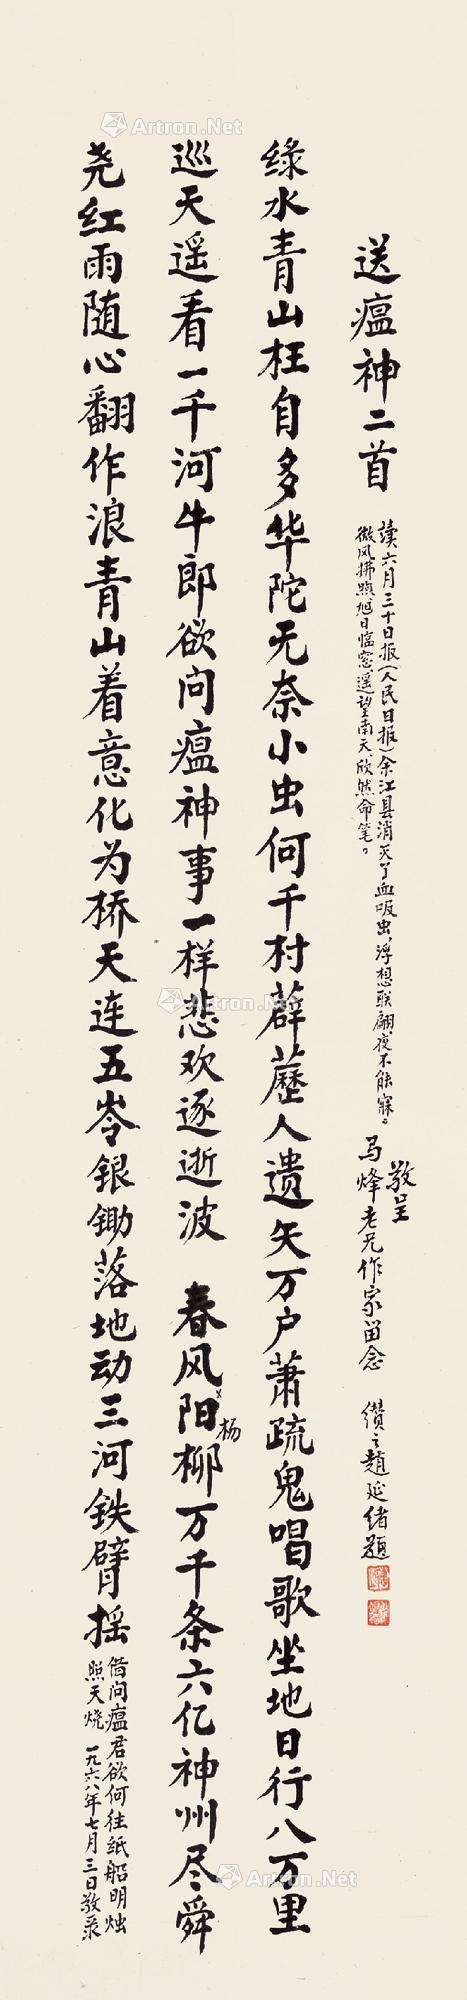 送瘟神二首
讀六月三十日报(人民日报)余江县消灭了血吸虫,浮想联翩,夜不能寐。
微风拂煦,旭日临窓,遥望南天,欣然命笔。
敬呈
马烽老兄作家留念
缵之趙延绪题
绿水青山枉自多华陀无奈小虫何千村薜蘑人遗矢万户萧疏鬼唱歌坐地日行八万里
巡天遥看一千河牛郎欲问瘟神事一样悲欢逐逝波 春风阳柳万千条六亿神州尽舜
杨
尧红雨随心翻作浪青山着意化为桥天连五岺银锄落地动三河铁臂摇
借问瘟君欲何往纸船明烛
照天烧 一九六八年七月三日敬录
Artron.Net
Artron.Net
Artron.Net
Artron.Net
Artron.Net
Artron.Net